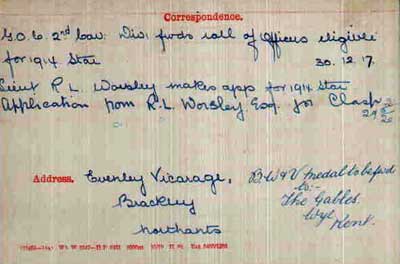 Correspondence.
G.O.C. 2nd Cav: Divn fwds roll of Officers eligible
for 1914 Star 30.12.17.
Lieut R. L. Worsley makes app for 1914 Star
Application from R. L. Worsley Esq. for Clasp
Address. Evenley Vicarage,
Brackley
Northants
B.W & V medal to be fwd
to:-
The Gables.
Wye
Kent.